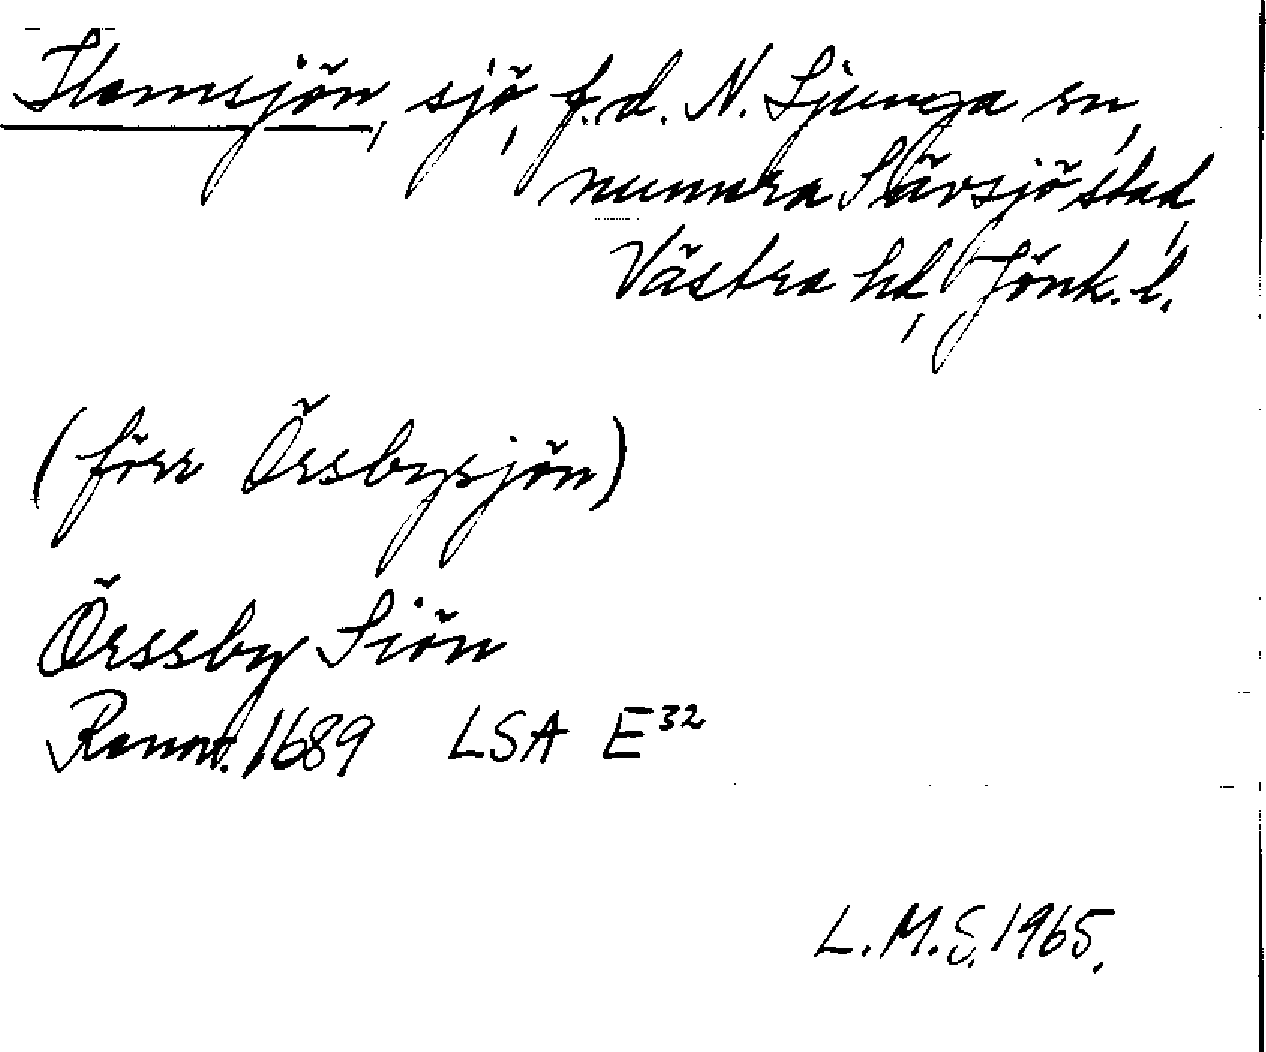 sjö, f.d. N. Ljunga sn,
numera Sävsjö stad,
Västra hd, Jönk. l.
(förr Örsbysjön)
Örssby Siön
1689 LSA E³²
L.M.S. 1965.